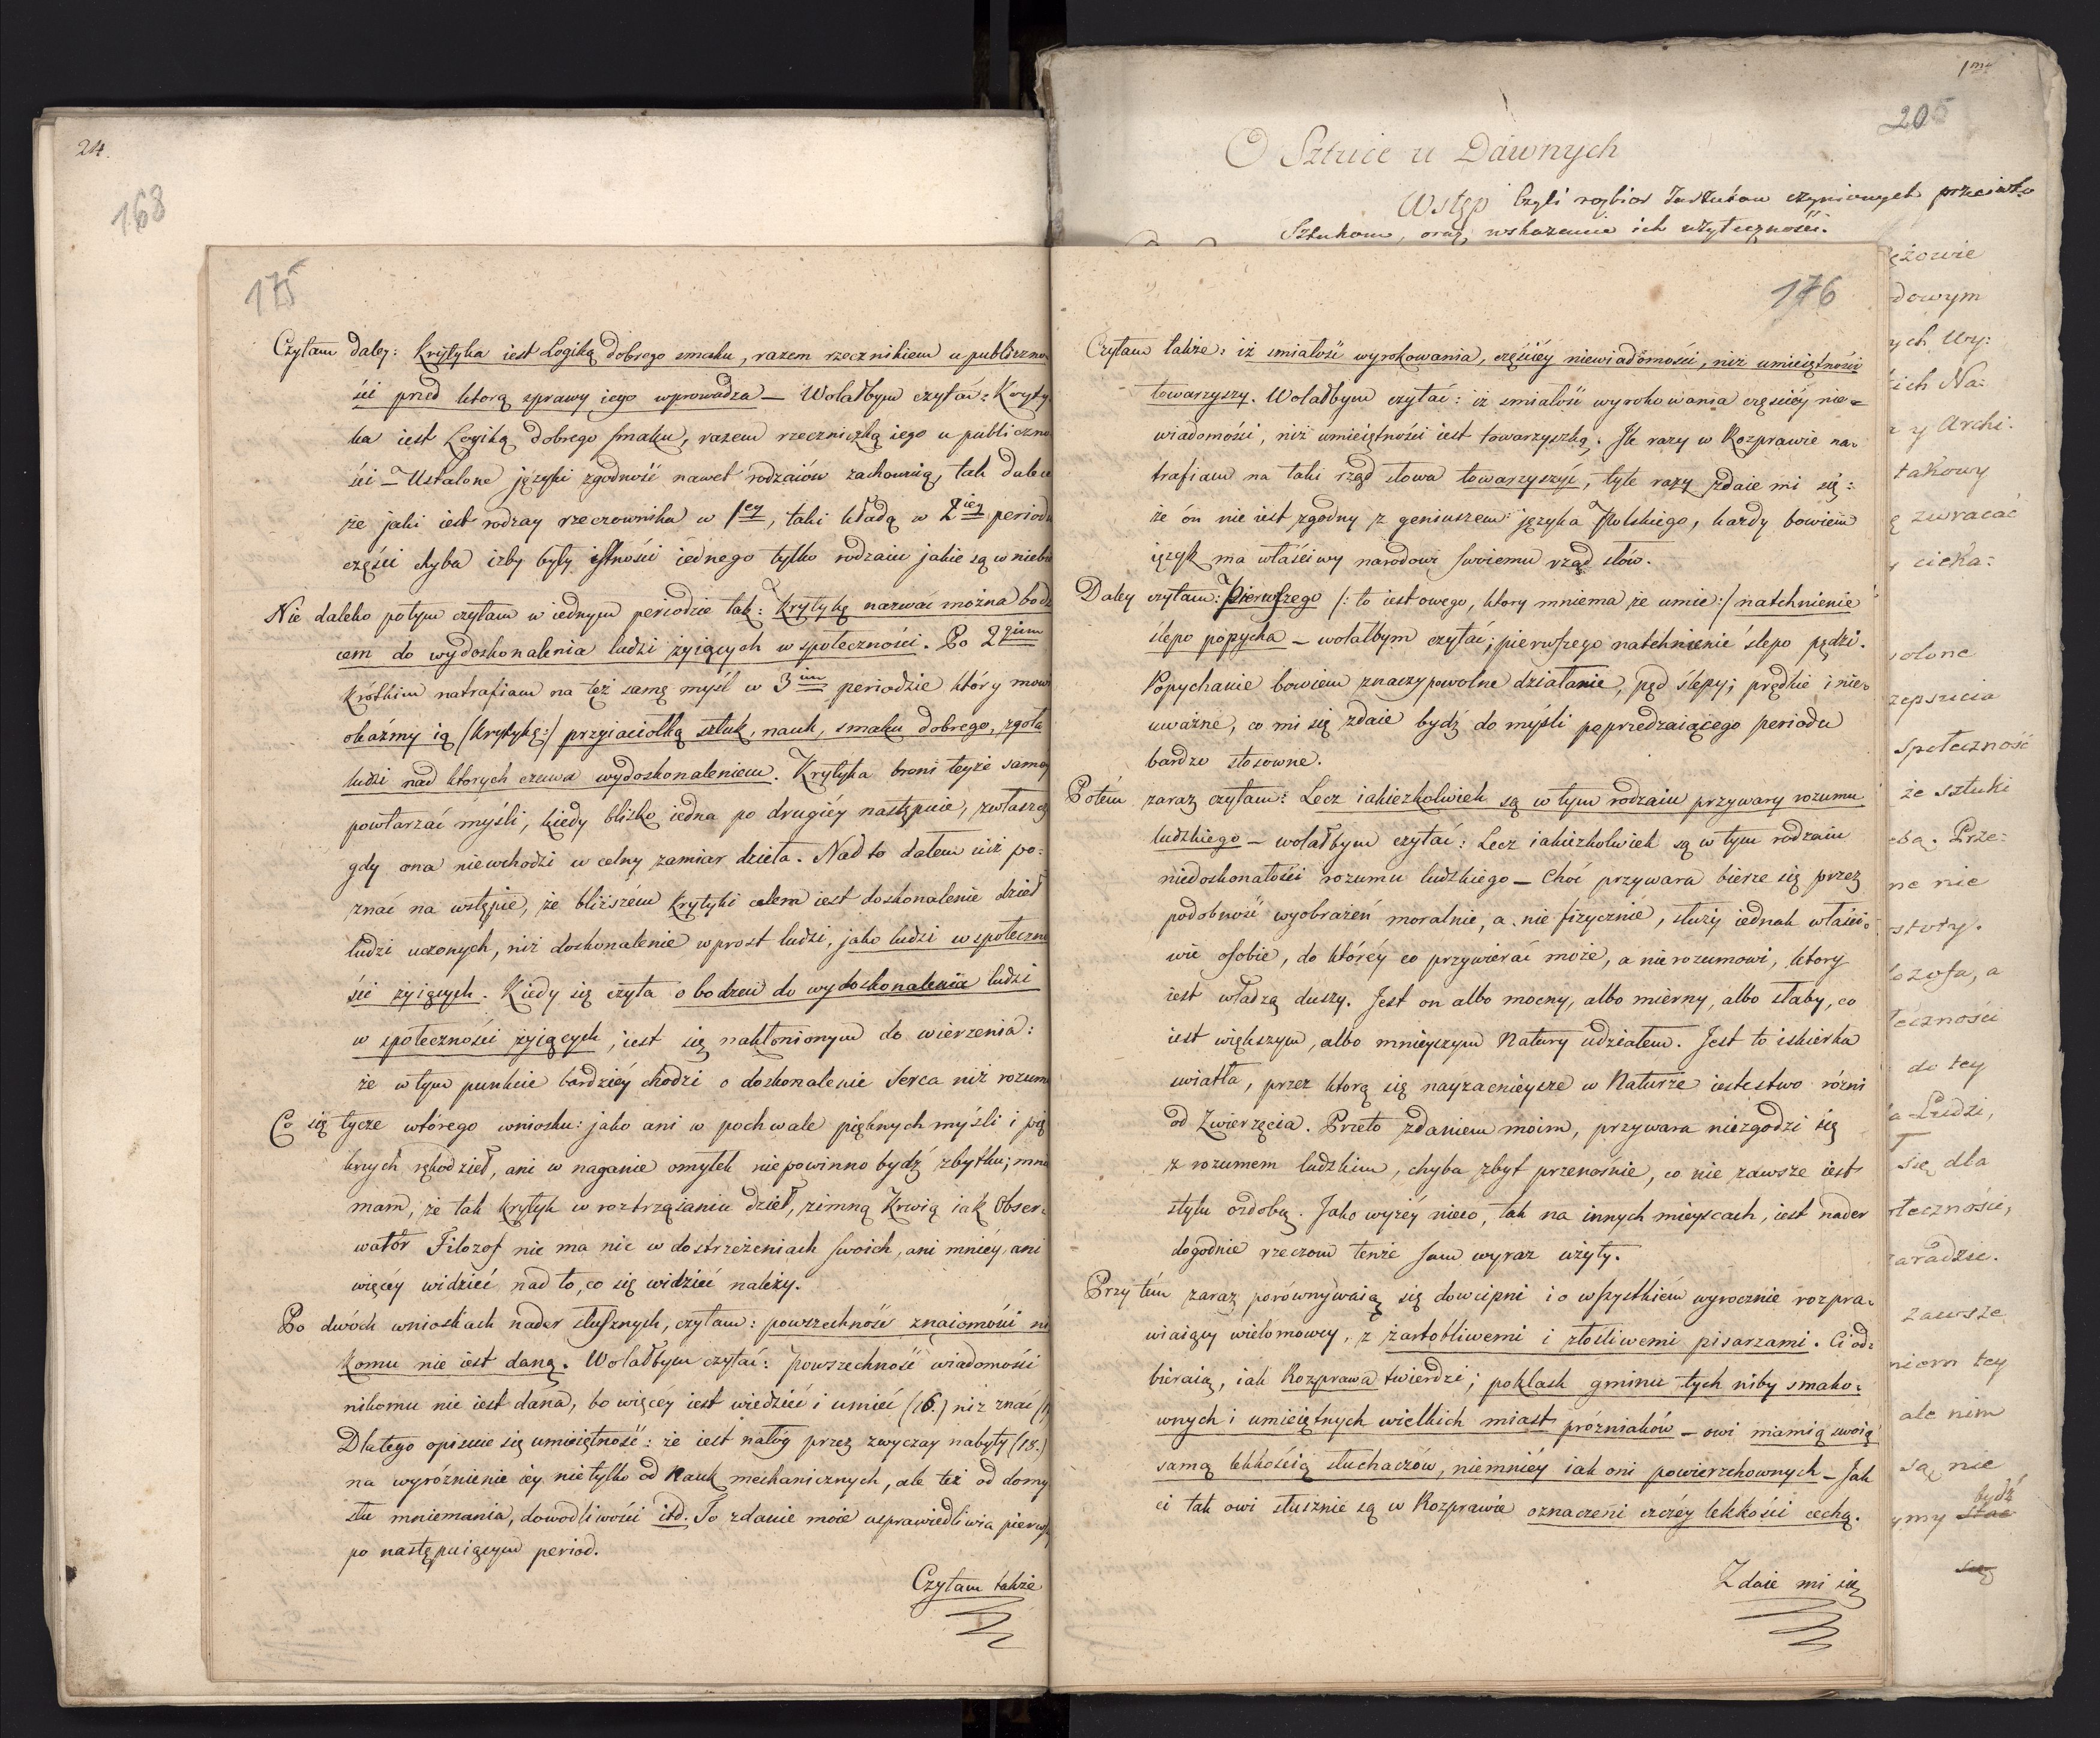 24.
168
175
Czytam daley: Krytyka iest Logiką dobrego smaku, razem rzecznikiem u publiczno
ści przed ktorą sprawy iego wprowadza — Wolałbym czytać: Kryty
ka iest Logiką dobrego smaku, razem rzeczniczką iego u publiczno
ści — Ustalone języki zgodność nawet rodzaiów zachowuią, tak dalece
że jaki iest rodzay rzeczownika w 1ey, taki kładą w 2iey periodu
części chyba izby były istności iednego tylko rodzaiu jakie są w niebie
Nie daleko potym czytam w iednym periodzie tak: Krytykę nazwać można bodź
cem do wydoskonalenia ludzi żyiących w społeczności. Po 2gim
krótkim natrafiam na też samą myśl w 3im periodzie który mowi
okażmy ią /Krytykę:/ przyiaciołką sztuk, nauk, smaku dobrego, zgoła
ludzi nad ktorych czuwa wydoskonaleniem. Krytyka broni teyże samey
powtarzać myśli, kiedy blisko iedna po drugiéy następuie, zwłaszcza
gdy ona niewchodzi w celny zamiar dzieła. Nad to dałem iuż po-
znać na wstępie, że bliższém krytyki celem iest doskonalenie dzieł
ludzi uczonych, niż doskonalenie wprost ludzi, jako ludzi w społeczno
ści żyiących. Kiedy się czyta o bodzcu do wydoskonalenia ludzi
w społeczności żyiących, iest się nakłonionym do wierzenia:
że w tym punkcie bardziéy chodzi o doskonalenie serca niż rozumu
Co się tycze wtórego wniosku: jako ani w pochwale pięknych myśli i pię
knych rękodzieł, ani w naganie omyłek niepowinno bydź zbytku; mnie
mam, że tak krytyk w roztrząsaniu dzieł, zimną krwią iak Obser-
wator Filozof nie ma nic w dostrzeżeniach swoich, ani mniéy, ani
więcéy widzieć nad to, co się widzieć należy.
Po dwóch wnioskach nader słusznych, czytam: powszechność znaiomości ni
komu nie iest daną. Wolałbym czytać: powszechność wiadomości
nikomu nie iest dana, bo więcey iest wiedzieć i umieć (16.) niż znać (17
Dlatego opisuie się umieiętność: że iest nałóg przez zwyczay nabyty (18.)
na wyróżnienie iey nietylko od nauk mechanicznych, ale też od domy
słu mniemania, dowodliwości itd. To zdanie moie usprawiedliwia pierwszy
po następuiącym period.
Czytam także
176
Czytam także: iż smiałość wyrokowania, częściéy niewiadomości, niż umieiętności
towarzyszy. Wolałbym czytać: iż smiałość wyrokowania częściéy nie-
wiadomości, niż umieiętności iest towarzyszką. Ile razy w Rozprawie na-
trafiam na taki rząd słowa towarzyszyć, tyle razy zdaie mi się:
że ón nie iest zgodny z geniuszem języka Polskiego, każdy bowiem
ięzyk ma właściwy narodowi swoiemu rząd słów.
Daley czytam: Pierwszego /: to iest owego, ktory mniema że umie:/ natchnienie
ślepo popycha — wolałbym czytać; pierwszego natchnienie ślepo pędzi.
Popychanie bowiem znaczy powolne działanie, pęd ślepy; prędkie i nie-
uważne, co mi się zdaie bydź do myśli poprzedzaiącego periodu
bardzo stosowne.
Potém zaraz czytam: Lecz iakieżkolwiek są w tym rodzaiu przywary rozumu
ludzkiego — wolałbym czytać: Lecz iakieżkolwiek są w tym rodzaiu
niedoskonałości rozumu ludzkiego — Choć przywara bierze się przez
podobność wyobrażeń moralnie, a nie fizycznie, służy iednak właści-
wie osobie, do któréy co przywierać może, a nie rozumowi, ktory
iest władzą duszy. Jest on albo mocny, albo mierny, albo słaby, co
iest większym, albo mnieyszym Natury udziałem. Jest to iskierka
swiatła, przez ktorą się nayzacnieysze w Naturze iestestwo rózni
od Zwierzęcia. Przeto zdaniem moim, przywara niezgodzi się
z rozumem ludzkim, chyba zbyt przenośnie, co nie zawsze iest
stylu ozdobą. Jako wyżéy nieco, tak na innych mieyscach, iest nader
dogodnie rzeczom tenże sam wyraz użyty.
Przy tém zaraz porównywaią się dowcipni i o wszystkiém wyrocznie rozpra-
wiaiący wielomowcy, z żartobliwemi i złośliwemi pisarzami. Ci od-
bieraią, iak Rozprawa twierdzi, poklask gminu tych niby smako-
wnych i umieiętnych wielkich miast próżniaków — owi mamią swoią
samą lekkością słuchaczów, niemniéy iak oni powierzchownych — Jak
ci tak owi słusznie są w Rozprawie oznaczeni czczéy lekkości cechą.
Zdaie mi się
205
O Sztuce u Dawnych
Wstęp Czyli rozbior Zarzutow czynionych przeciwko
Sztukom, oraz, wskazanie ich użyteczności.
dowym
ich Na-
y Archi-
takowy
zwracać
społeczność
że sztuki
Prze-
ne nie
do tey
Ludzi,
się dla
zawsze
tey
ale nim
są nie
bydź
ymy stac
się